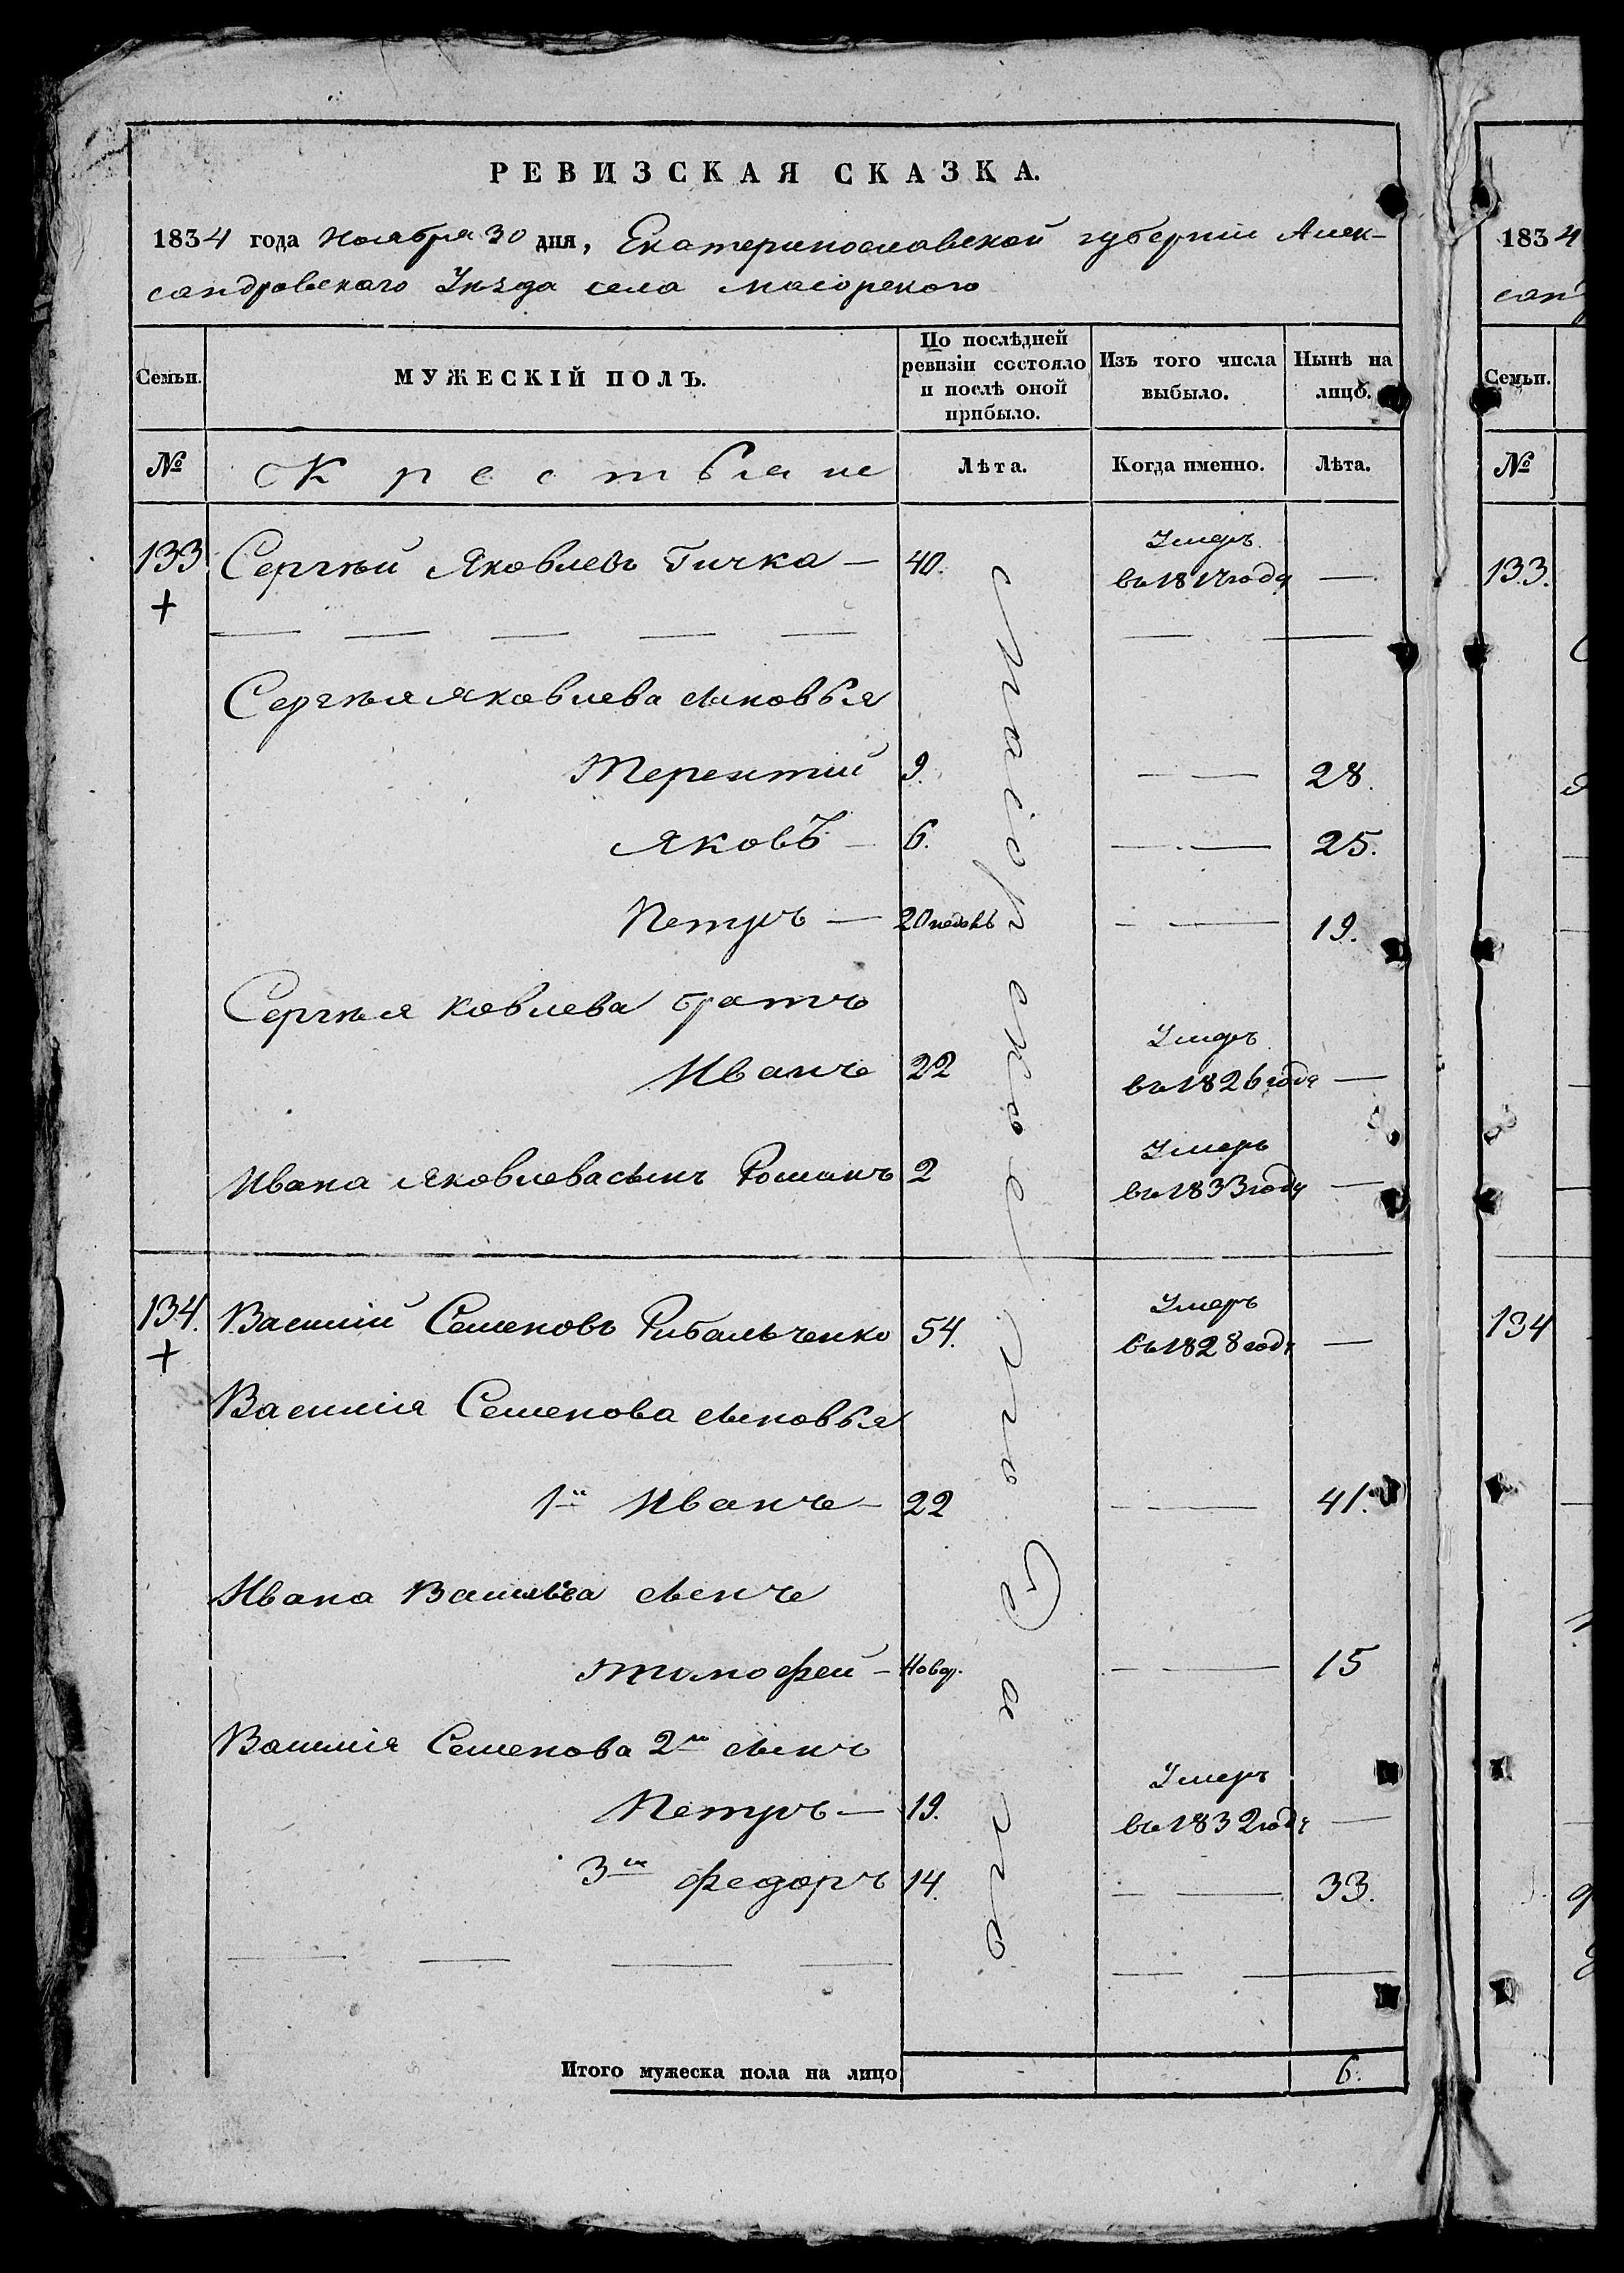 РЕВИЗСКАЯ СКАЗКА.
1834 года Ноября 30 дня, Екатеринославской губернии Алек-
сандровского Уѣзда села Маіорского
Семьи.
МУЖЕСКІЙ ПОЛЪ.
По послѣдней
ревизіи состояло
и послѣ оной
прибыло.
Изъ того числа
выбыло.
Нынѣ на
лицо.
№
Крестьяне
Лѣта.
Когда именно.
Лѣта.
133 Сергѣй Яковлевъ Гичка — 40. Умеръ въ 1817 году —
+
Сергѣя Яковлева сыновья
Терентий 9. — — 28.
Яковъ — 6. — — 25.
Петръ — 20 недѣль — — 19.
Сергѣя Ковлева братъ
Иванъ 22 Умеръ въ 1826 года —
Ивана Яковлева сынъ Романъ 2 Умеръ въ 1833 году —
134. Василий Семеновъ Рибальченко 54. Умеръ въ 1828 году —
+
Василия Семенова сыновья
1й Иванъ — 22 — — 41.
Ивана Васильева сынъ
Тимофей — Новор. — — 15
Василия Семенова 2й сынъ
Петръ — 19. Умеръ въ 1832 году —
3й Федоръ 14. — — 33.
Маіорское
Итого мужеска пола на лицо 6.
1834
сан
Семьи.
№
133.
134